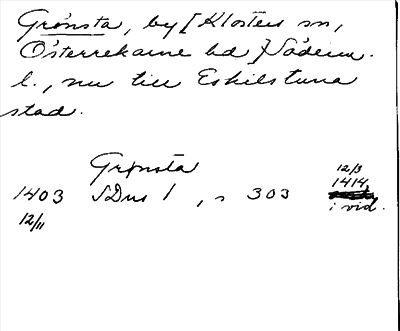 Grönsta, by [Klosters sn,
Österrekarne hd] Söderm.
l., nu till Eskilstuna
stad.
Grønsta
12/3
1403 SDns 1, s 303 1414
12/11
i vid.